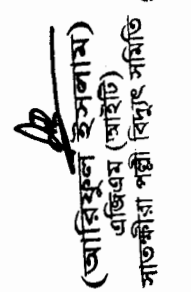 (আরিফুল ইসলাম)
এজিএম (আইটি)
সাতক্ষীরা পল্লী বিদ্যুৎ সমিতি